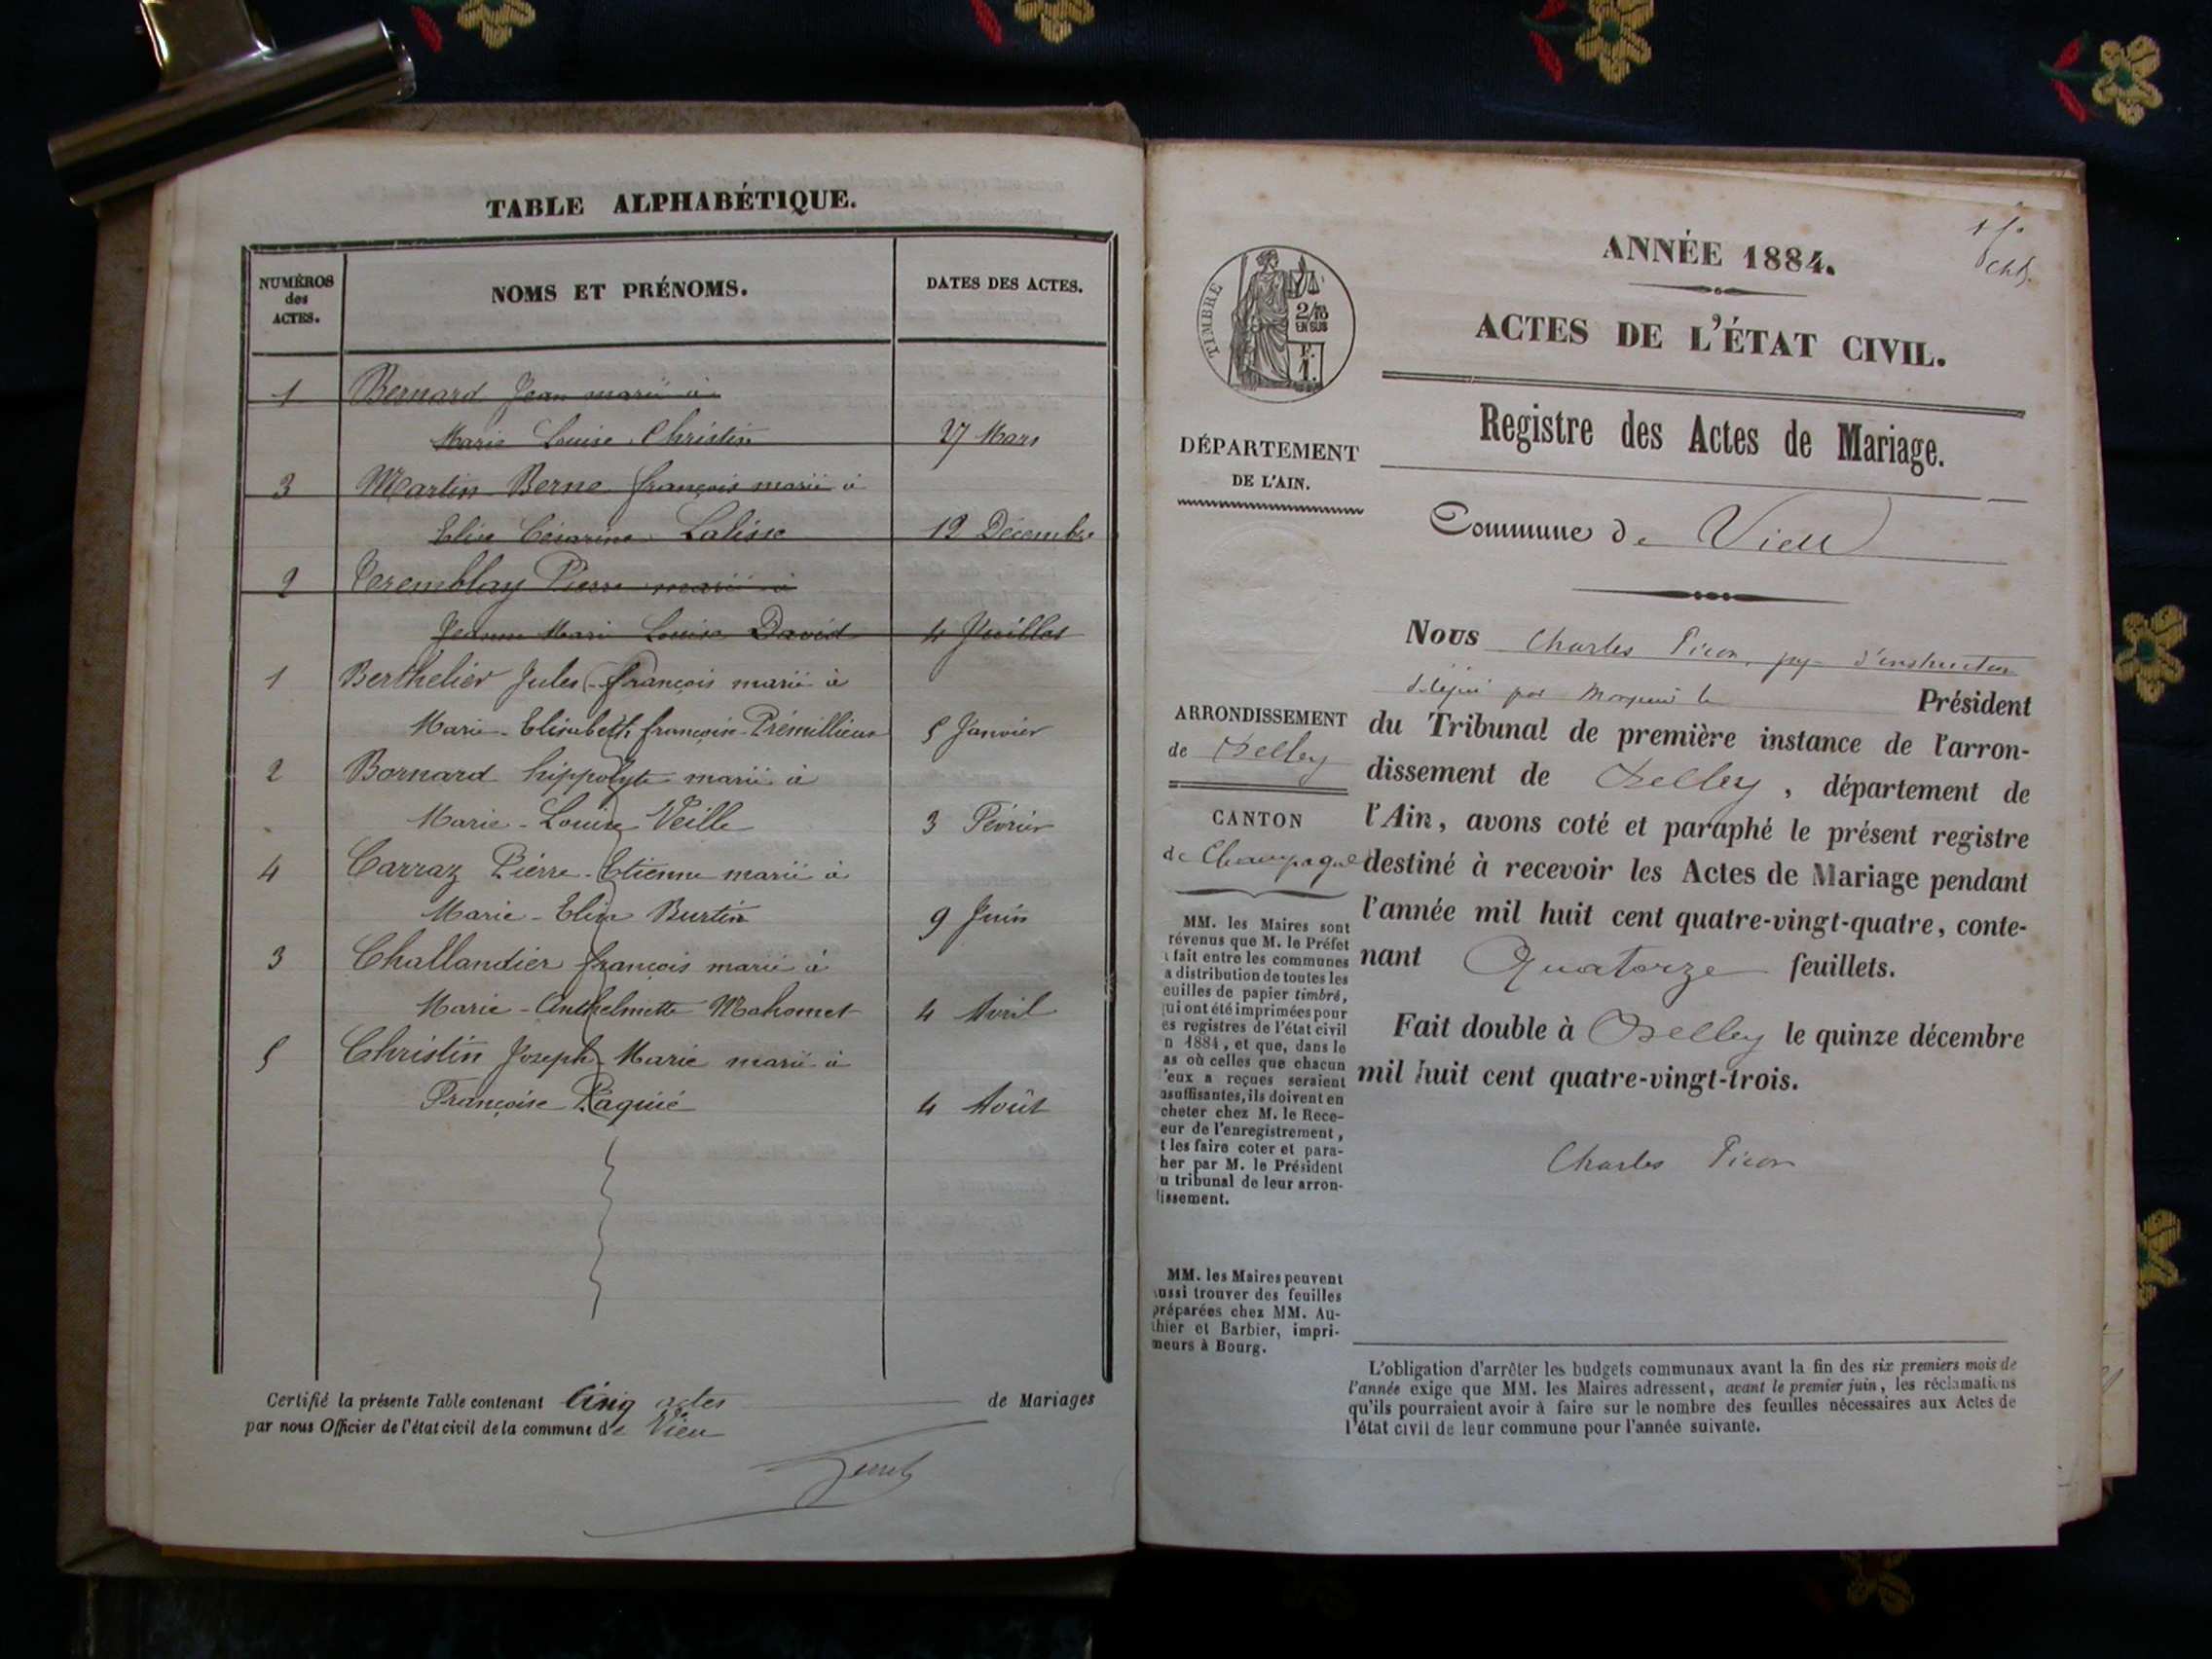 TABLE ALPHABÉTIQUE.
NUMÉROS des ACTES.
NOMS ET PRÉNOMS.
DATES DES ACTES.
1 Bernard Jean marié à
Marie Louise Christin 27 Mars
3 Martin-Berne françois marié à
Elise Césarine Lalisse 19 Décembre
2 Peremblay Pierre marié à
Jeanne Marie Louise David 4 Juillet
1 Berthelier Jules-françois marié à
Marie-Elisabeth françoise Prémillieux 5 Janvier
2 Bornard hippolyte marié à
Marie-Louise Veille 3 Février
4 Carraz Pierre-Etienne marié à
Marie-Elisa Burtin 9 Juin
3 Challandier françois marié à
Marie-Anthelmette Mahomet 4 Avril
5 Christin Joseph Marie marié à
Françoise Paquié 4 Août
Certifié la présente Table contenant Cinq actes de Mariages
par nous Officier de l'état civil de la commune de Vieu
ANNÉE 1884.
ACTES DE L'ÉTAT CIVIL.
TIMBRE
2/10
EN SUS
F.
1.
Registre des Actes de Mariage.
DÉPARTEMENT
DE L'AIN.
Commune de Vieu
Nous Charles Picon, juge d'instruction
délégué par Monsieur le Président
du Tribunal de première instance de l'arron-
dissement de Belley, département de
l'Ain, avons coté et paraphé le présent registre
destiné à recevoir les Actes de Mariage pendant
l'année mil huit cent quatre-vingt-quatre, conte-
nant Quatorze feuillets.
Fait double à Belley le quinze décembre
mil huit cent quatre-vingt-trois.
Charles Picon
ARRONDISSEMENT
de Belley
CANTON
de Champagne
MM. les Maires sont
révenus que M. le Préfet
fait entre les communes
a distribution de toutes les
euilles de papier timbré,
qui ont été imprimées pour
es registres de l'état civil
n 1884, et que, dans le
as où celles que chacun
'eux a reçues seraient
nsuffisantes, ils doivent en
cheter chez M. le Rece-
eur de l'enregistrement,
t les faire coter et para-
her par M. le Président
u tribunal de leur arron-
issement.
MM. les Maires peuvent
ussi trouver des feuilles
préparées chez MM. Au-
thier et Barbier, impri-
meurs à Bourg.
L'obligation d'arrêter les budgets communaux avant la fin des six premiers mois de
l'année exige que MM. les Maires adressent, avant le premier juin, les réclamations
qu'ils pourraient avoir à faire sur le nombre des feuilles nécessaires aux Actes de
l'état civil de leur commune pour l'année suivante.